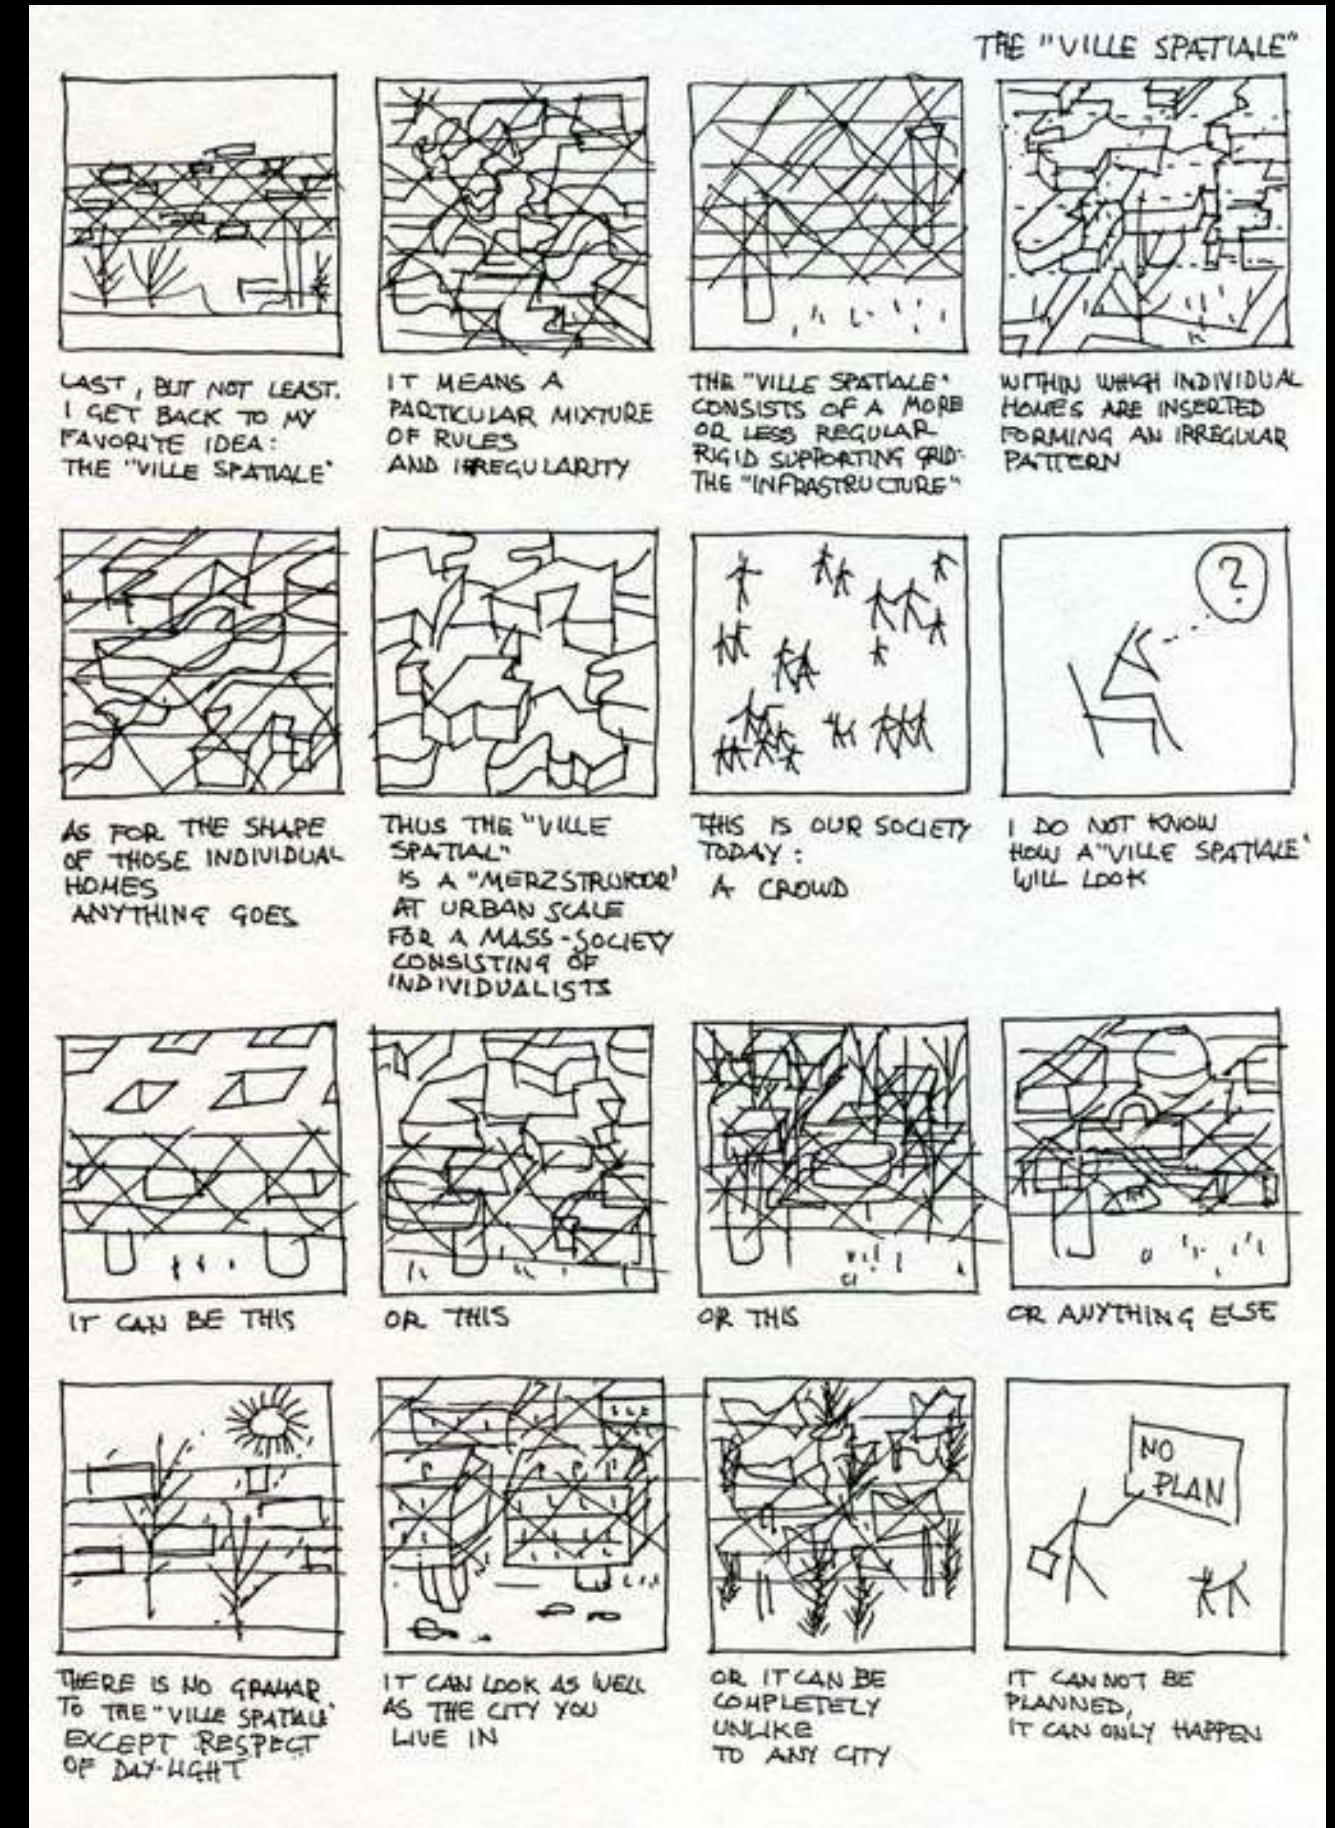 THE "VILLE SPATIALE"
LAST, BUT NOT LEAST.
I GET BACK TO MY
FAVORITE IDEA:
THE "VILLE SPATIALE"
IT MEANS A
PARTICULAR MIXTURE
OF RULES
AND IRREGULARITY
THE "VILLE SPATIALE"
CONSISTS OF A MORE
OR LESS REGULAR
RIGID SUPPORTING GRID:
THE "INFRASTRUCTURE"
WITHIN WHICH INDIVIDUAL
HOMES ARE INSERTED
FORMING AN IRREGULAR
PATTERN
AS FOR THE SHAPE
OF THOSE INDIVIDUAL
HOMES
ANYTHING GOES
THUS THE "VILLE
SPATIAL"
IS A "MERZSTRUKTUR"
AT URBAN SCALE
FOR A MASS-SOCIETY
CONSISTING OF
INDIVIDUALISTS
THIS IS OUR SOCIETY
TODAY:
A CROWD
?
I DO NOT KNOW
HOW A "VILLE SPATIALE"
WILL LOOK
IT CAN BE THIS
OR THIS
OR THIS
OR ANYTHING ELSE
THERE IS NO GRAMAR
TO THE "VILLE SPATIALE"
EXCEPT RESPECT
OF DAY-LIGHT
IT CAN LOOK AS WELL
AS THE CITY YOU
LIVE IN
OR IT CAN BE
COMPLETELY
UNLIKE
TO ANY CITY
NO
PLAN
IT CAN NOT BE
PLANNED,
IT CAN ONLY HAPPEN